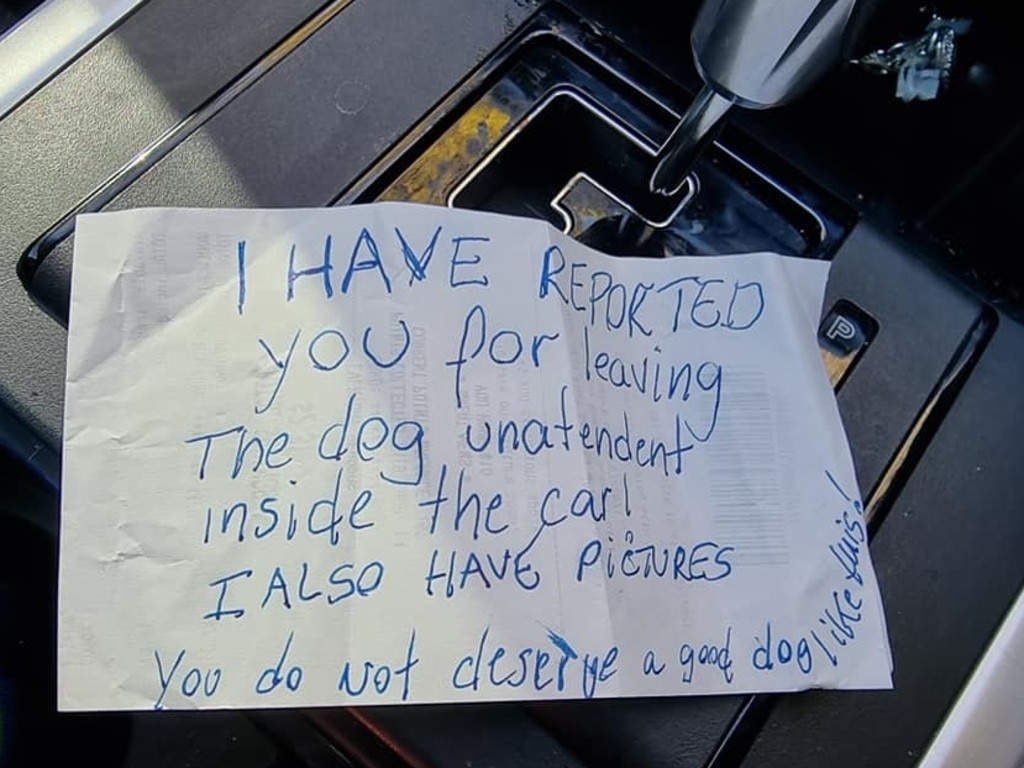 I HAVE REPORTED
you for leaving
The dog unatendent
inside the car!
I ALSO HAVE PICTURES
You do not deserve a good dog like this!
P